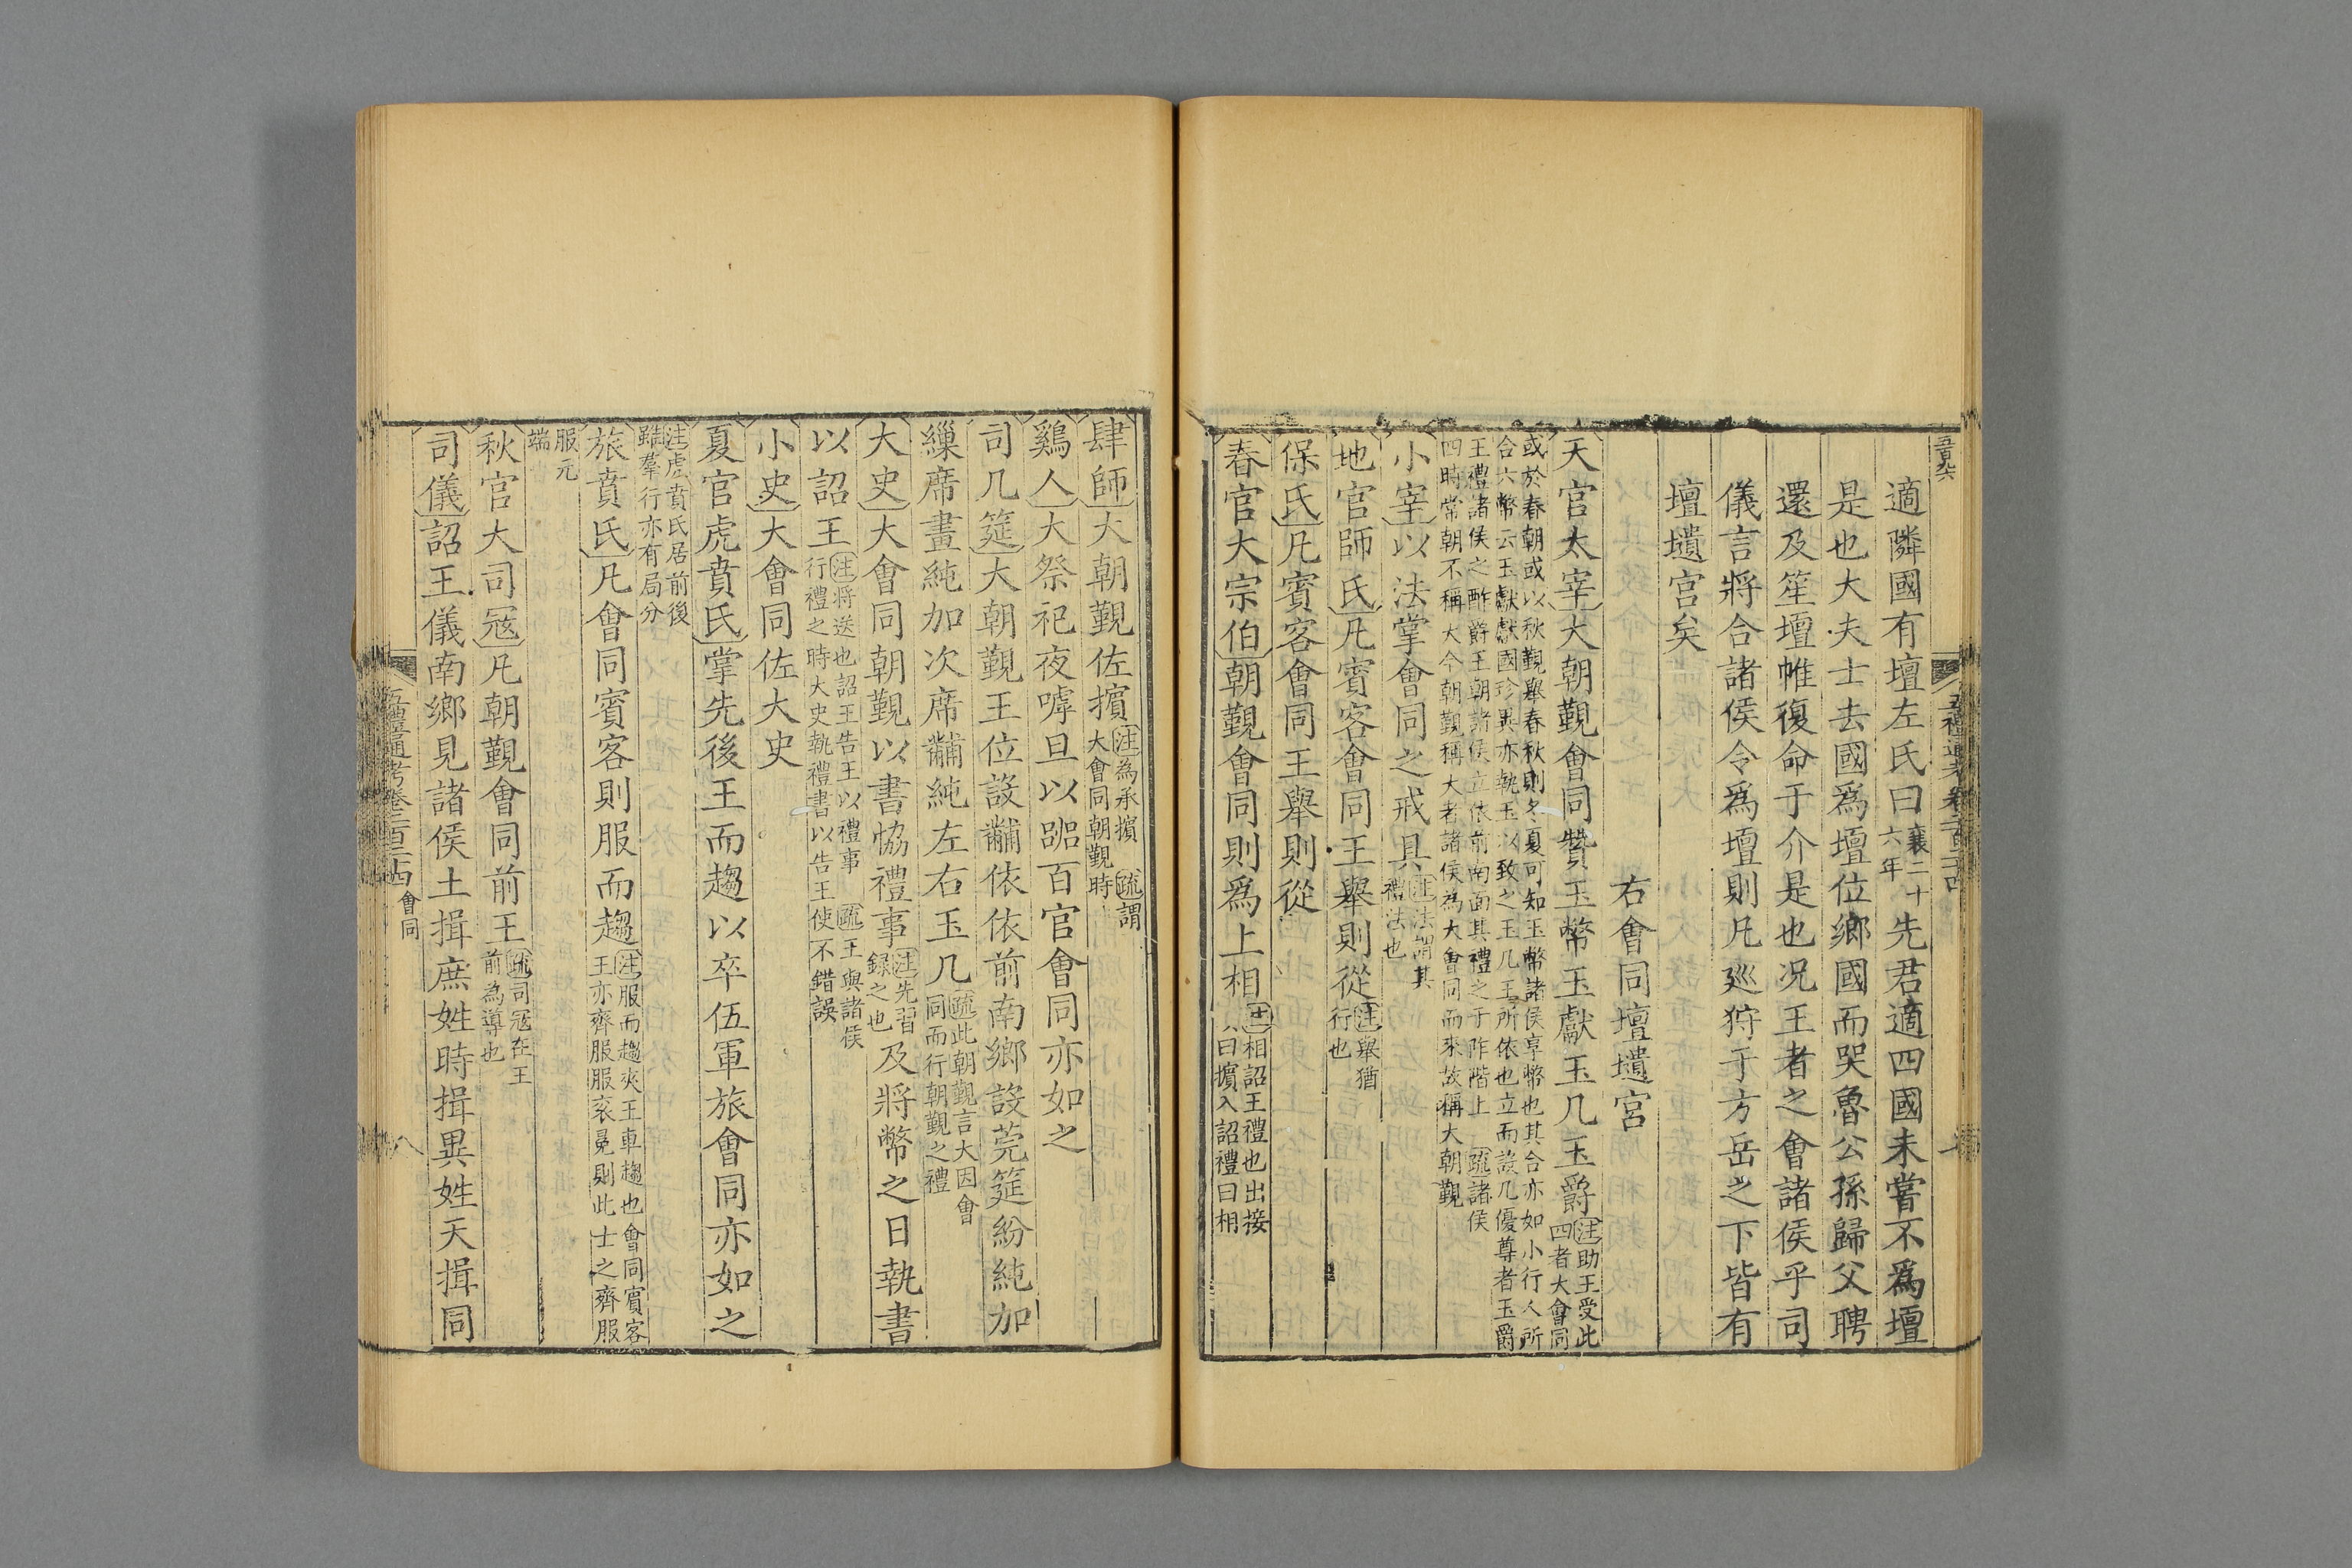 適隣國有壇左氏曰襄二十六年先君適四國未嘗不爲壇
是也大夫士去國爲壇位鄉國而哭魯公孫歸父聘
還及笙壇帷復命于介是也况王者之會諸侯乎司
儀言將合諸侯令爲壇則凡巡狩于方岳之下皆有
壇壝宫矣
右會同壇壝宫
天官太宰大朝覲會同贊玉幣玉獻玉几玉爵注助王受此四者大會同
或於春朝或以秋覲舉春秋則冬夏可知玉幣諸侯享幣也其合亦如小行人所
合六幣云玉獻獻國珍異亦執玉以致之玉几王所依也立而設几優尊者玉爵
王禮諸侯之酢爵王朝諸侯立依前南面其禮之于阼階上 疏諸侯
四時常朝不稱大今朝覲稱大者諸侯為大會同而來故稱大朝覲
小宰以法掌會同之戒具注法謂其禮法也
地官師氏凡賓客會同王舉則從注舉猶行也
保氏凡賓客會同王舉則從
春官大宗伯朝覲會同則爲上相注相詔王禮也出接賓曰擯入詔禮曰相
肆師大朝覲佐擯注為承擯 疏謂大會同朝覲時
鷄人大祭祀夜嘑旦以嘂百官會同亦如之
司几筵大朝覲王位設黼依依前南鄉設莞筵紛純加
繅席畫純加次席黼純左右玉几疏此朝覲言大因會同而行朝覲之禮
大史大會同朝覲以書恊禮事注先習錄之也及將幣之日執書
以詔王注將送也詔王告王以禮事 疏王與諸侯行禮之時大史執禮書以告王使不錯誤
小史大會同佐大史
夏官虎賁氏掌先後王而趨以卒伍軍旅會同亦如之
注虎賁氏居前後雖羣行亦有局分
旅賁氏凡會同賓客則服而趨注服而趨夾王車趨也會同賓客王亦齊服服衮冕則此士之齊服
服元端
秋官大司寇凡朝覲會同前王疏司寇在王前為導也
司儀詔王儀南鄉見諸侯土揖庶姓時揖異姓天揖同
五禮通考卷二百二十四 會同
八